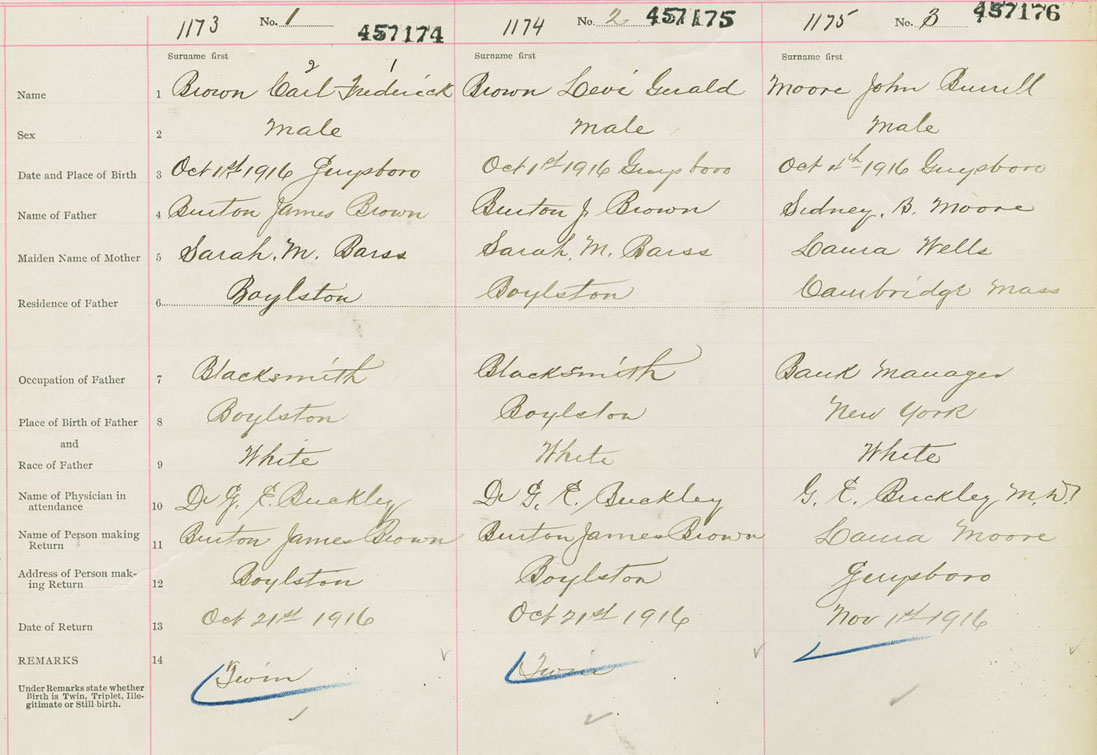 1173 No. 1 457174 1174 No. 2 457175 1175 No. 3 457176
Surname first Surname first Surname first
2 1
Name 1 Brown Carl Frederick Brown Levi Gerald Moore John Burrell
Sex 2 Male Male Male
Date and Place of Birth 3 Oct 1st 1916 Guysboro Oct 1st 1916 Guysboro Oct 4th 1916 Guysboro
Name of Father 4 Burton James Brown Burton J. Brown Sidney. B. Moore
Maiden Name of Mother 5 Sarah. M. Barss Sarah. M. Barss Laura Wells
Residence of Father 6 Boylston Boylston Cambridge Mass
Occupation of Father 7 Blacksmith Blacksmith Bank Manager
Place of Birth of Father 8 Boylston Boylston New York
and
Race of Father 9 White White White
Name of Physician in
attendance 10 Dr G. E. Buckley Dr G. E. Buckley G. E. Buckley M.D.
Name of Person making
Return 11 Burton James Brown Burton James Brown Laura Moore
Address of Person mak-
ing Return 12 Boylston Boylston Guysboro
Date of Return 13 Oct 21st 1916 Oct 21st 1916 Nov 1st 1916
REMARKS 14 Twin Twin
Under Remarks state whether
Birth is Twin, Triplet, Ille-
gitimate or Still-birth.